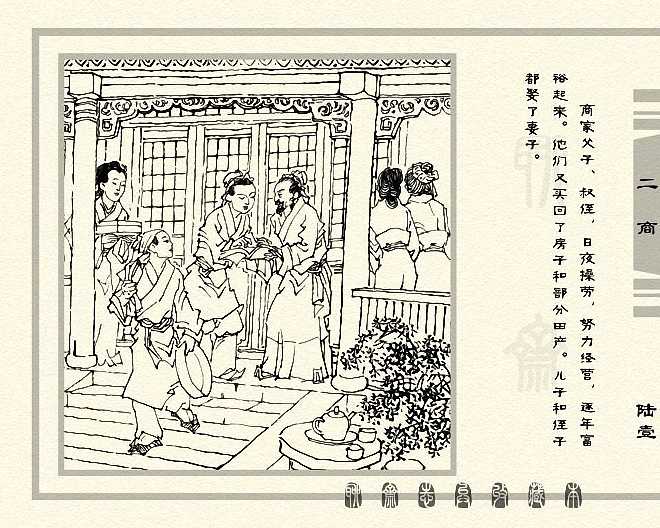 商家父子、叔侄，日夜操劳，努力经营，逐年富
裕起来。他们又买回了房子和部分田产。儿子和侄子
都娶了妻子。
二商
陆壹
聊斋志异收藏本